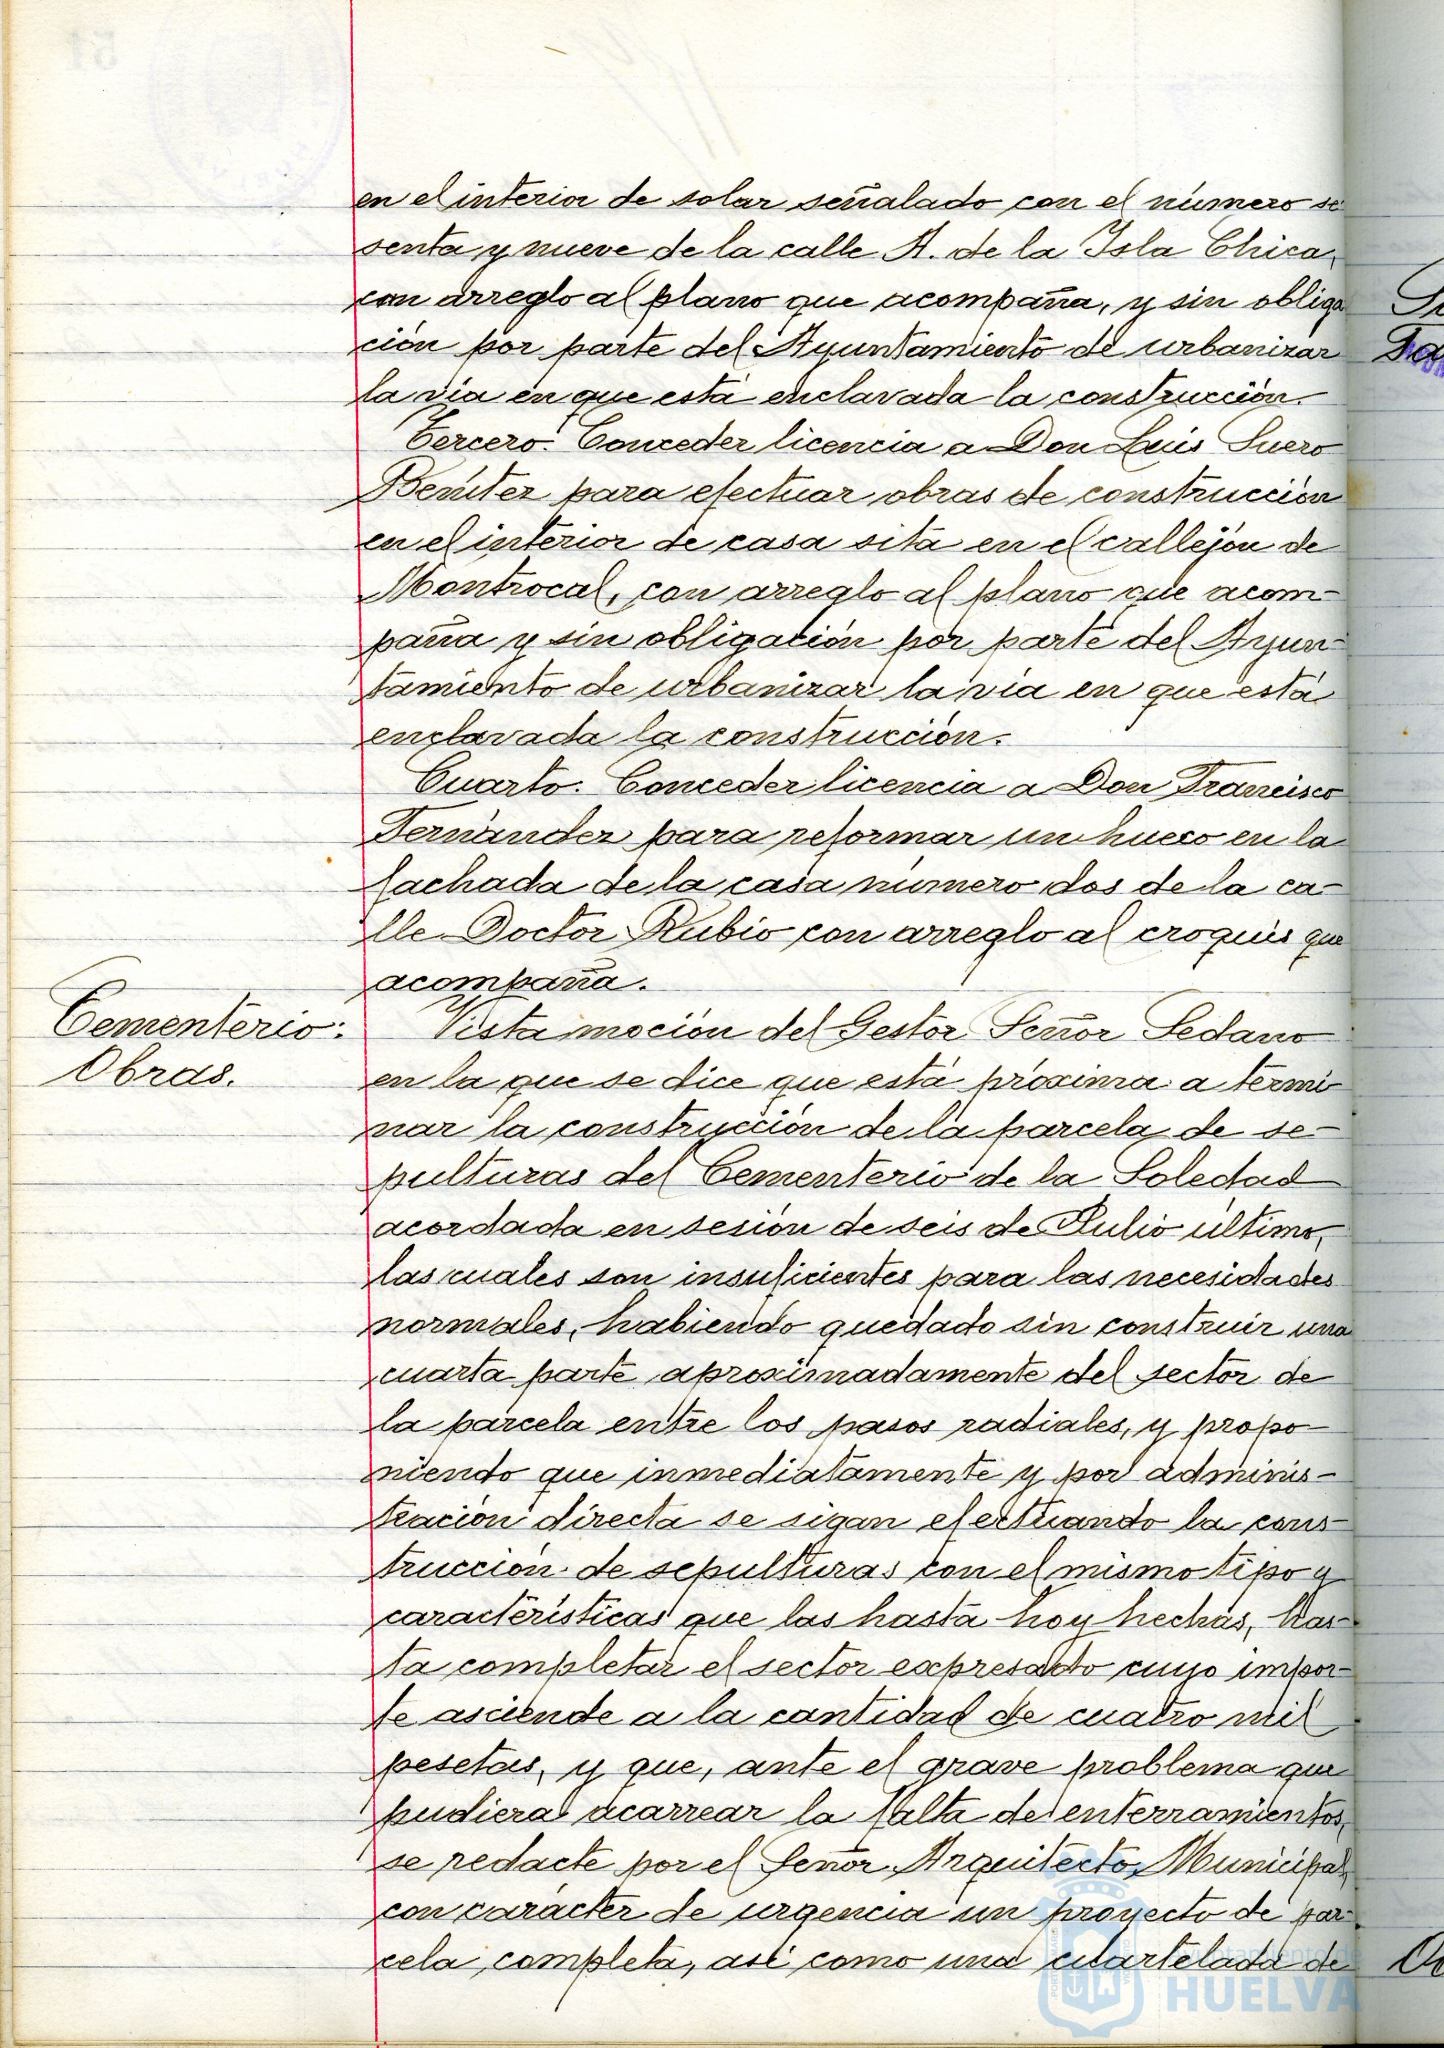 en el interior de solar señalado con el número se
senta y nueve de la calle A. de la Isla Chica,
con arreglo al plano que acompaña, y sin obliga
ción por parte del Ayuntamiento de urbanizar
la via en que está enclavada la construcción.
Tercero. Conceder licencia a Don Luis Suero
Benítez para efectuar obras de construcción
en el interior de casa sita en el callejón de
Montrocal, con arreglo al plano que acom-
paña y sin obligación por parte del Ayun-
tamiento de urbanizar la via en que está
enclavada la construcción.
Cuarto. Conceder licencia a Don Francisco
Fernández para reformar un hueco en la
fachada de la casa número dos de la ca-
lle Doctor Rubio con arreglo al croquis que
acompaña.
Cementerio:
Obras.
Vista moción del Gestor Señor Sedano
en la que se dice que está próxima a termi
nar la construcción de la parcela de se-
pulturas del Cementerio de la Soledad
acordada en sesión de seis de Julio último,
las cuales son insuficientes para las necesidades
normales, habiendo quedado sin construir una
cuarta parte aproximadamente del sector de
la parcela entre los pasos radiales, y propo-
niendo que inmediatamente y por adminis-
tración directa se sigan efectuando la cons-
trucción de sepulturas con el mismo tipo y
características que las hasta hoy hechas, has-
ta completar el sector expresado cuyo impor-
te asciende a la cantidad de cuatro mil
pesetas, y que, ante el grave problema que
pudiera acarrear la falta de enterramientos,
se redacte por el Señor Arquitecto Municipal,
con carácter de urgencia un proyecto de par-
cela completa, así como una cuartelada de
Ayuntamiento de
HUELVA